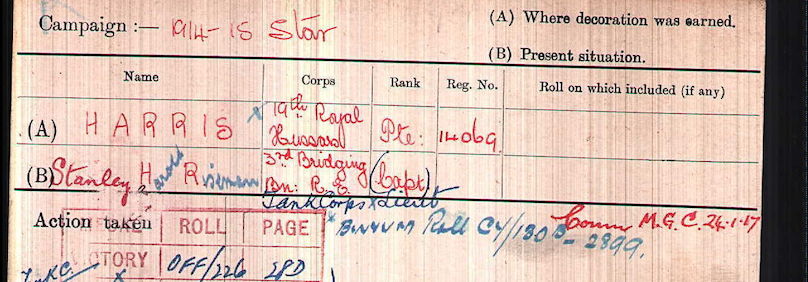 Campaign :— 1914-15 Star
(A) Where decoration was earned.
(B) Present situation.
Name Corps Rank Reg. No. Roll on which included (if any)
(A) HARRIS x 19th Royal Hussars Pte. 14069
(B) Stanley Harold R 3rd Bridging Bn: R.E. (Capt)
Tank Corps x Lieut
Action taken
ROLL PAGE
CTORY OFF/226 28D
x Roll C4/130 B - 2899.
Comm M.G.C. 24.1.17
x